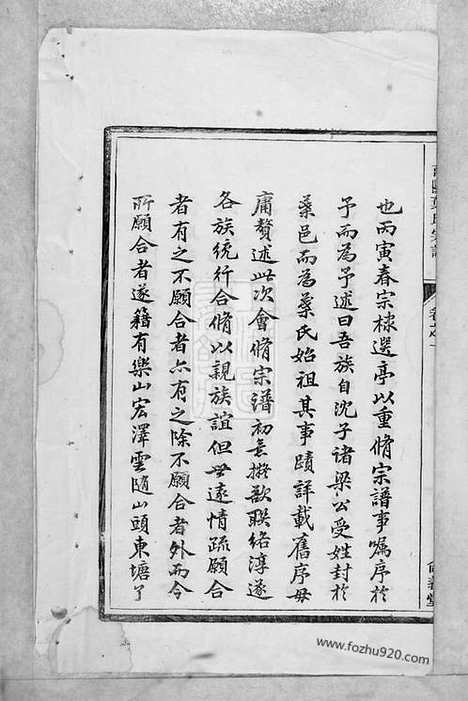 也丙寅春宗棣選亭以重脩宗譜事囑序於
予而為予述曰吾族自沈子诸梁公受姓封於
葉邑而為葉氏始祖其事蹟詳載舊序毋
庸贅述此次會脩宗譜初無擬欲聯絡淳遂
各族統行合脩以親族誼但世遠情疏願合
者有之不願合者亦有之除不願合者外而今
所願合者遂籍有樂山宏澤雲隨山頭東塘等
www.fozhu920.com